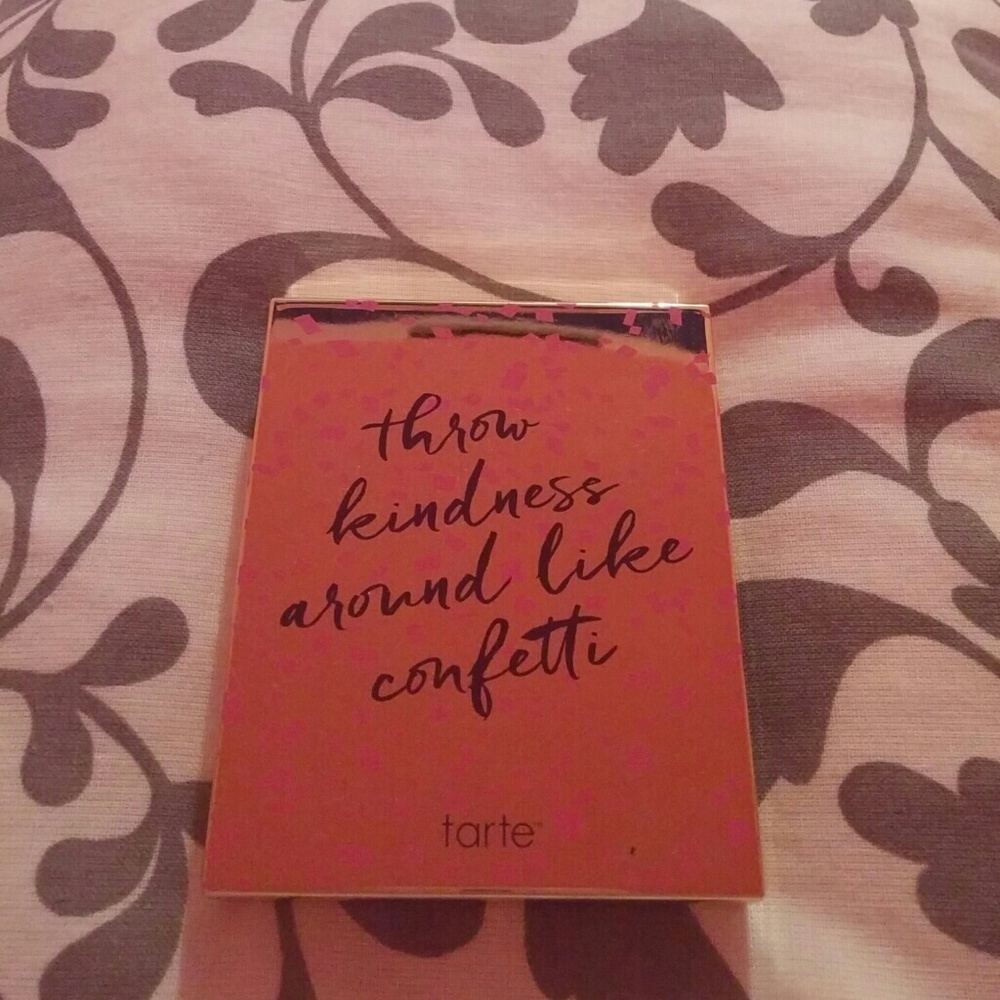 throw
kindness
around like
confetti
tarte™